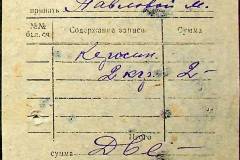 принять Павловой М.
№№ бал. сч. Содержание записи Сумма
Керосин
2 кгр. 2-
Итого
сумма Две